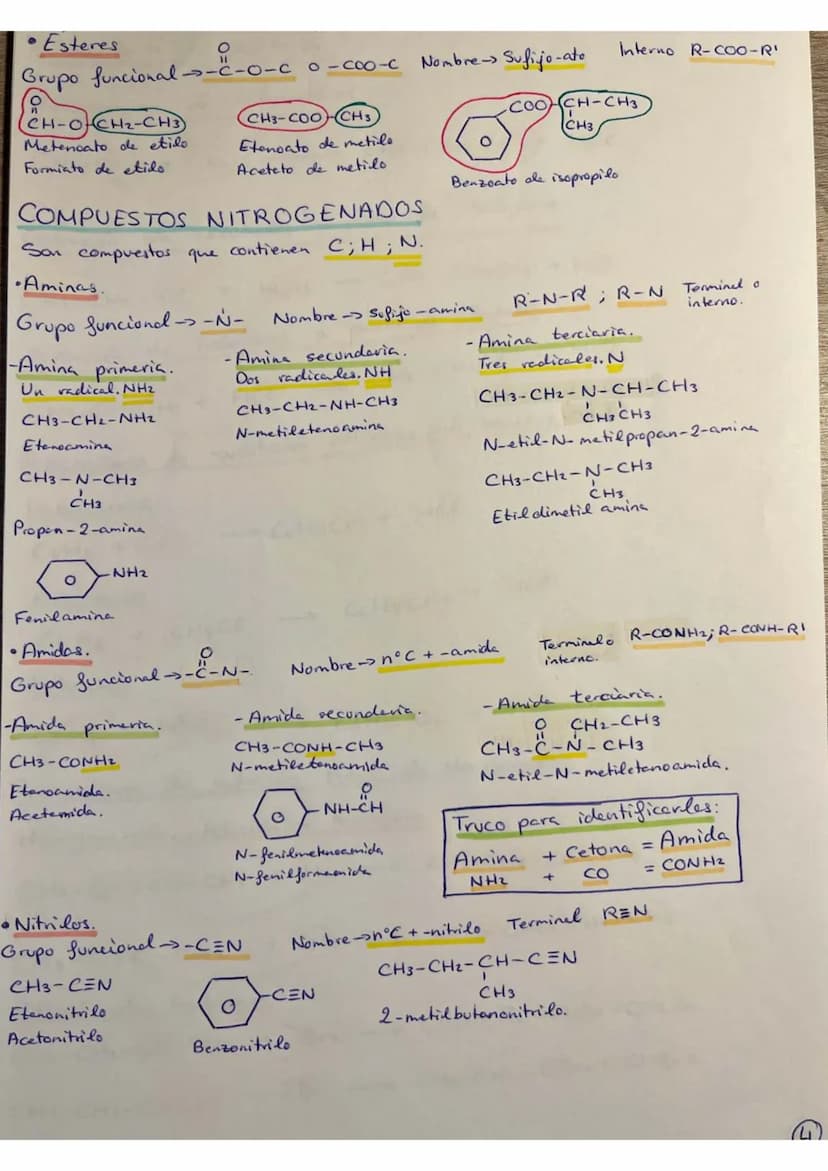 • Esteres
O
Grupo funcional → -C-O-C o -COO-C Nombre → Sufijo-ato Interno R-COO-R'
O
CH-O-CH2-CH3 CH3-COO-CH3 COO-CH-CH3
CH3
Metenoato de etilo Etenoato de metilo
Formiato de etilo Aceteto de metilo Benzoato de isopropilo
COMPUESTOS NITROGENADOS
Son compuestos que contienen C; H; N.
• Aminas.
Grupo funcional → -N- Nombre → Sufijo-amina R-N-R'; R-N Terminel o interno.
- Amina primeria.
Un radical. NH2
CH3-CH2-NH2
Etenoamina
CH3-N-CH3
CH3
Propan-2-amina
NH2
Fenilamina
- Amina secundaria.
Dos radicales. NH
CH3-CH2-NH-CH3
N-metiletenoamina
- Amina terciaria.
Tres radicales. N
CH3-CH2-N-CH-CH3
CH3 CH3
N-etil-N-metilpropan-2-amina
CH3-CH2-N-CH3
CH3
Etildimetil amina
• Amidas.
O
Grupo funcional → -C-N- Nombre → nºC + -amida Terminel o interno. R-CONH2; R-CONH-R'
- Amida primeria.
CH3-CONH2
Etenoamida.
Acetemida.
- Amida secunderia.
CH3-CONH-CH3
N-metiletenoamida
O
NH-CH
N-fenilmetenoamida
N-fenilformamida
- Amida terciaria.
O CH2-CH3
CH3-C-N-CH3
N-etil-N-metiletanoamida.
Truco para identificarles:
Amina + Cetona = Amida
NH2 + CO = CONH2
• Nitrilos.
Grupo funcional → -C≡N Nombre → nºC + -nitrilo Terminel R≡N
CH3-C≡N
Etenonitrilo
Acetonitrilo
C≡N
Benzonitrilo
CH3-CH2-CH-C≡N
CH3
2-metilbutenonitrilo.
4